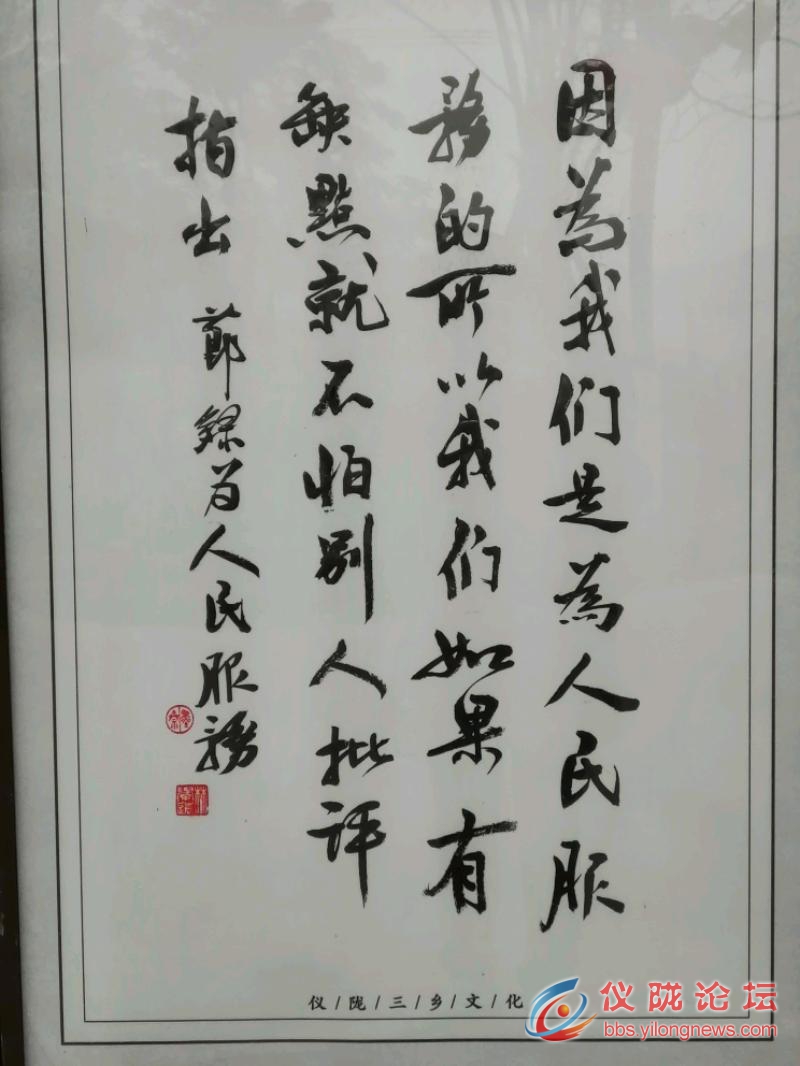 因為我们是為人民服
務的所以我们如果有
缺點就不怕别人批评
指出 節錄为人民服務
仪/陇/三/乡/文/化
仪陇论坛
bbs.yilongnews.com